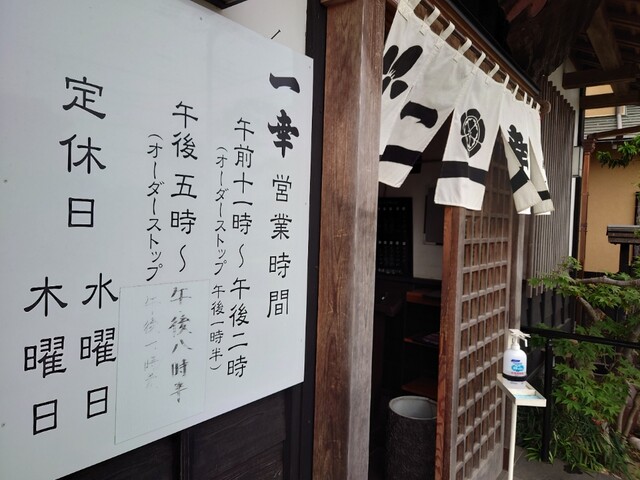 一幸 営業時間
午前十一時〜午後二時
(オーダーストップ 午後一時半)
午後五時〜午後八時半
(オーダーストップ
定休日 水曜日
木曜日
一幸